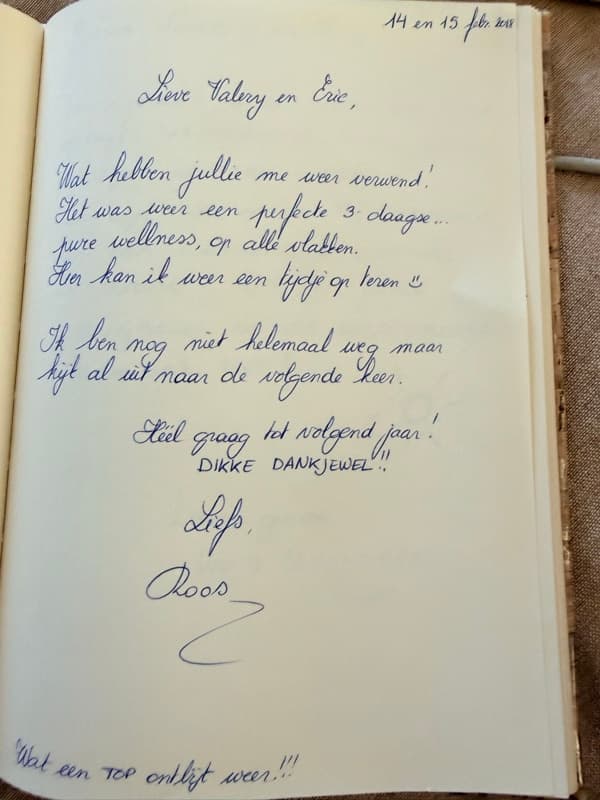 14 en 15 febr. 2018
Lieve Valery en Eric,
Wat hebben jullie me weer verwend!
Het was weer een perfecte 3-daagse...
pure wellness, op alle vlakken.
Hier kan ik weer een tijdje op teren
Ik ben nog niet helemaal weg maar
kijk al uit naar de volgende keer.
Héél graag tot volgend jaar!
DIKKE DANKJEWEL!!
Liefs,
Roos
Wat een TOP ontbijt weer!!!